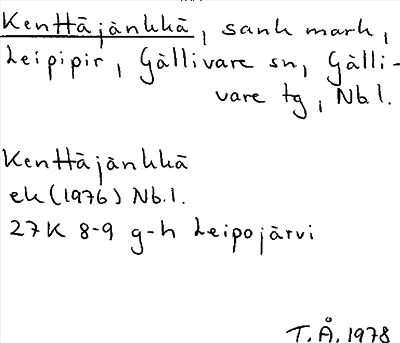 Kenttäjänkkä, sank mark,
Leipipir, Gällivare sn, Gälli-
vare tg, Nb.l.
Kenttäjänkkä
ek (1976) Nb.l.
27K 8-9 g-h Leipojärvi
T.Å. 1978